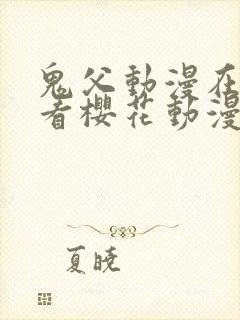 鬼父動漫在
看櫻花動漫
夏曉